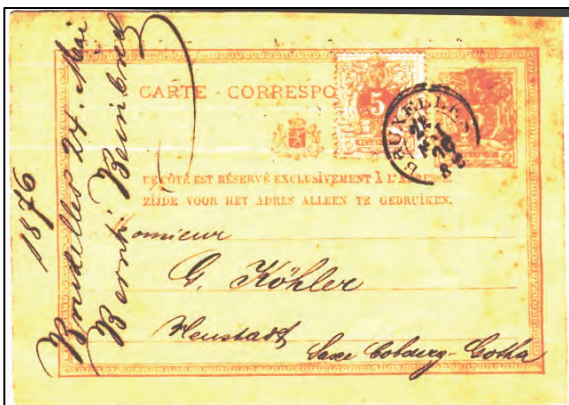 1876
Bruxelles 24. Mai
CARTE - CORRESPO
5
BRUXELLES
CE CÔTÉ EST RÉSERVÉ EXCLUSIVEMENT À L'ADRESSE
ZIJDE VOOR HET ADRES ALLEEN TE GEBRUIKEN.
Monsieur
G. Köhler
Neustadt
Saxe Cobourg-Gotha